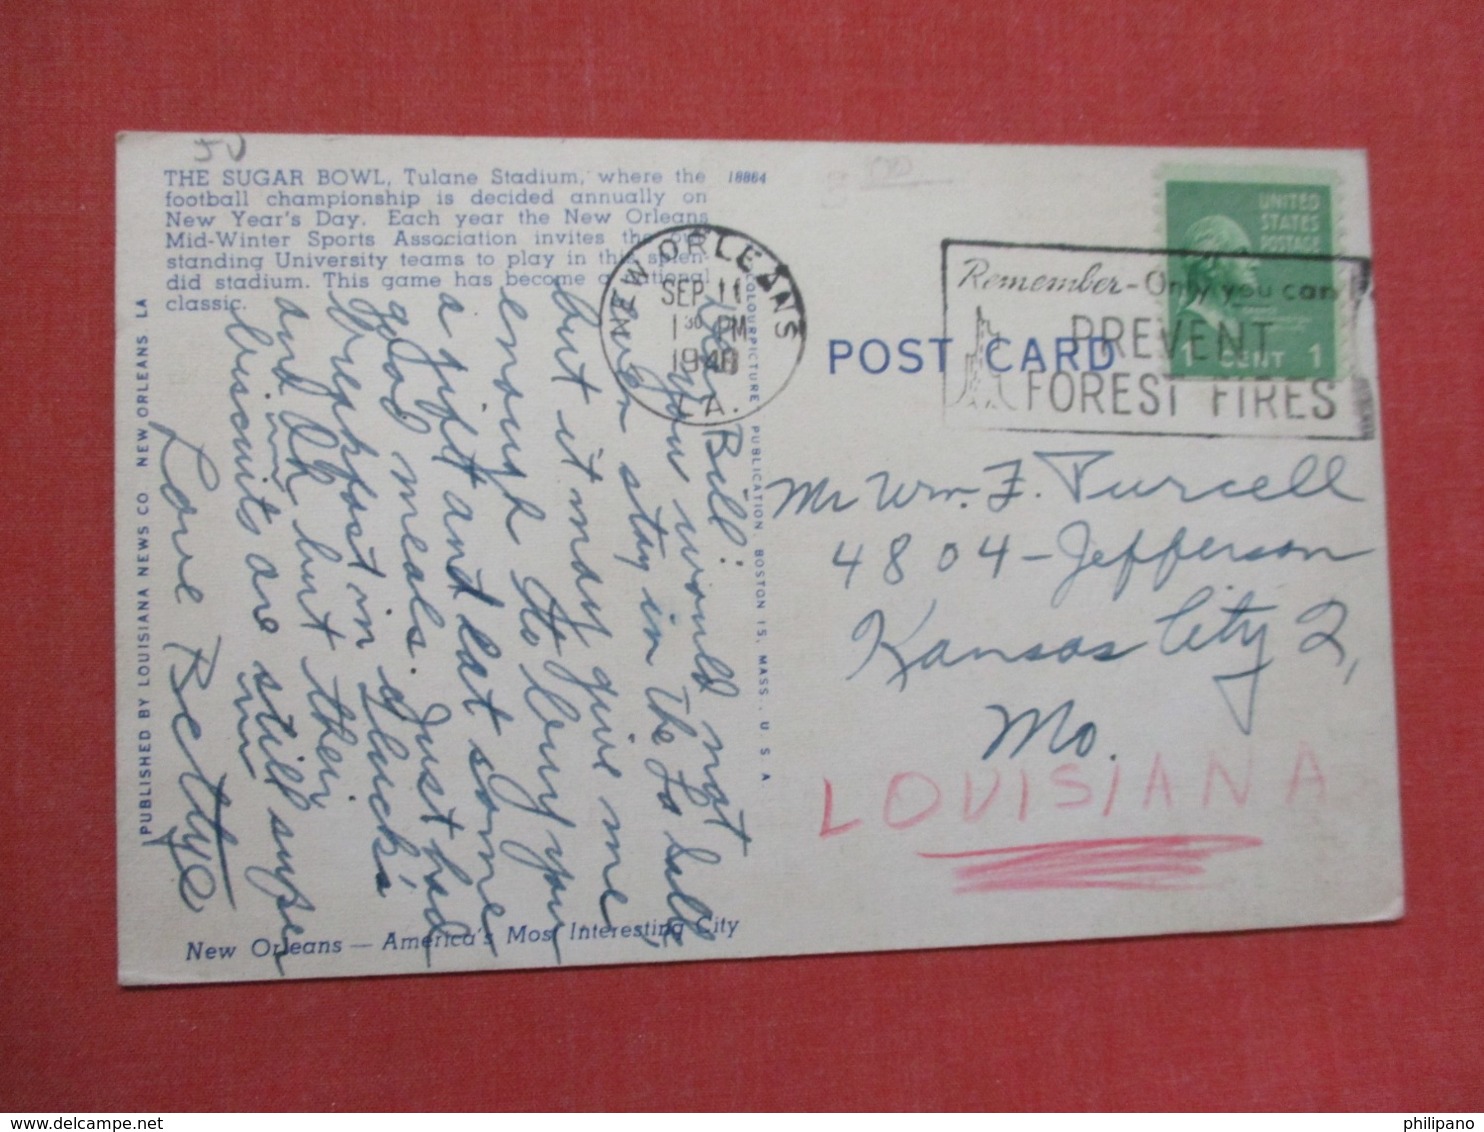 50
THE SUGAR BOWL, Tulane Stadium, where the
football championship is decided annually on
New Year's Day. Each year the New Orleans
Mid-Winter Sports Association invites the out-
standing University teams to play in this splen-
did stadium. This game has become a national
classic.
18864
PUBLISHED BY LOUISIANA NEWS CO. NEW ORLEANS. LA
COLOURPICTURE PUBLICATION, BOSTON 15, MASS., U. S. A
NEW ORLEANS
SEP 11
1 30 PM
1948
LA.
Remember - Only you can
PREVENT
FOREST FIRES
UNITED
STATES
POSTAGE
1 CENT 1
POST CARD
Dear Bill:
You would not
even stay in the La Salle,
but it may give me
enough to buy you
a gift and eat some
good meals. Just had
breakfast in Gluck's
and Oh but their
biscuits are still super
Love Bettye
Mr Wm. F. Purcell
4804 - Jefferson
Kansas City 2,
Mo.
LOUISIANA
New Orleans — America's Most Interesting City
philipano
www.delcampe.net